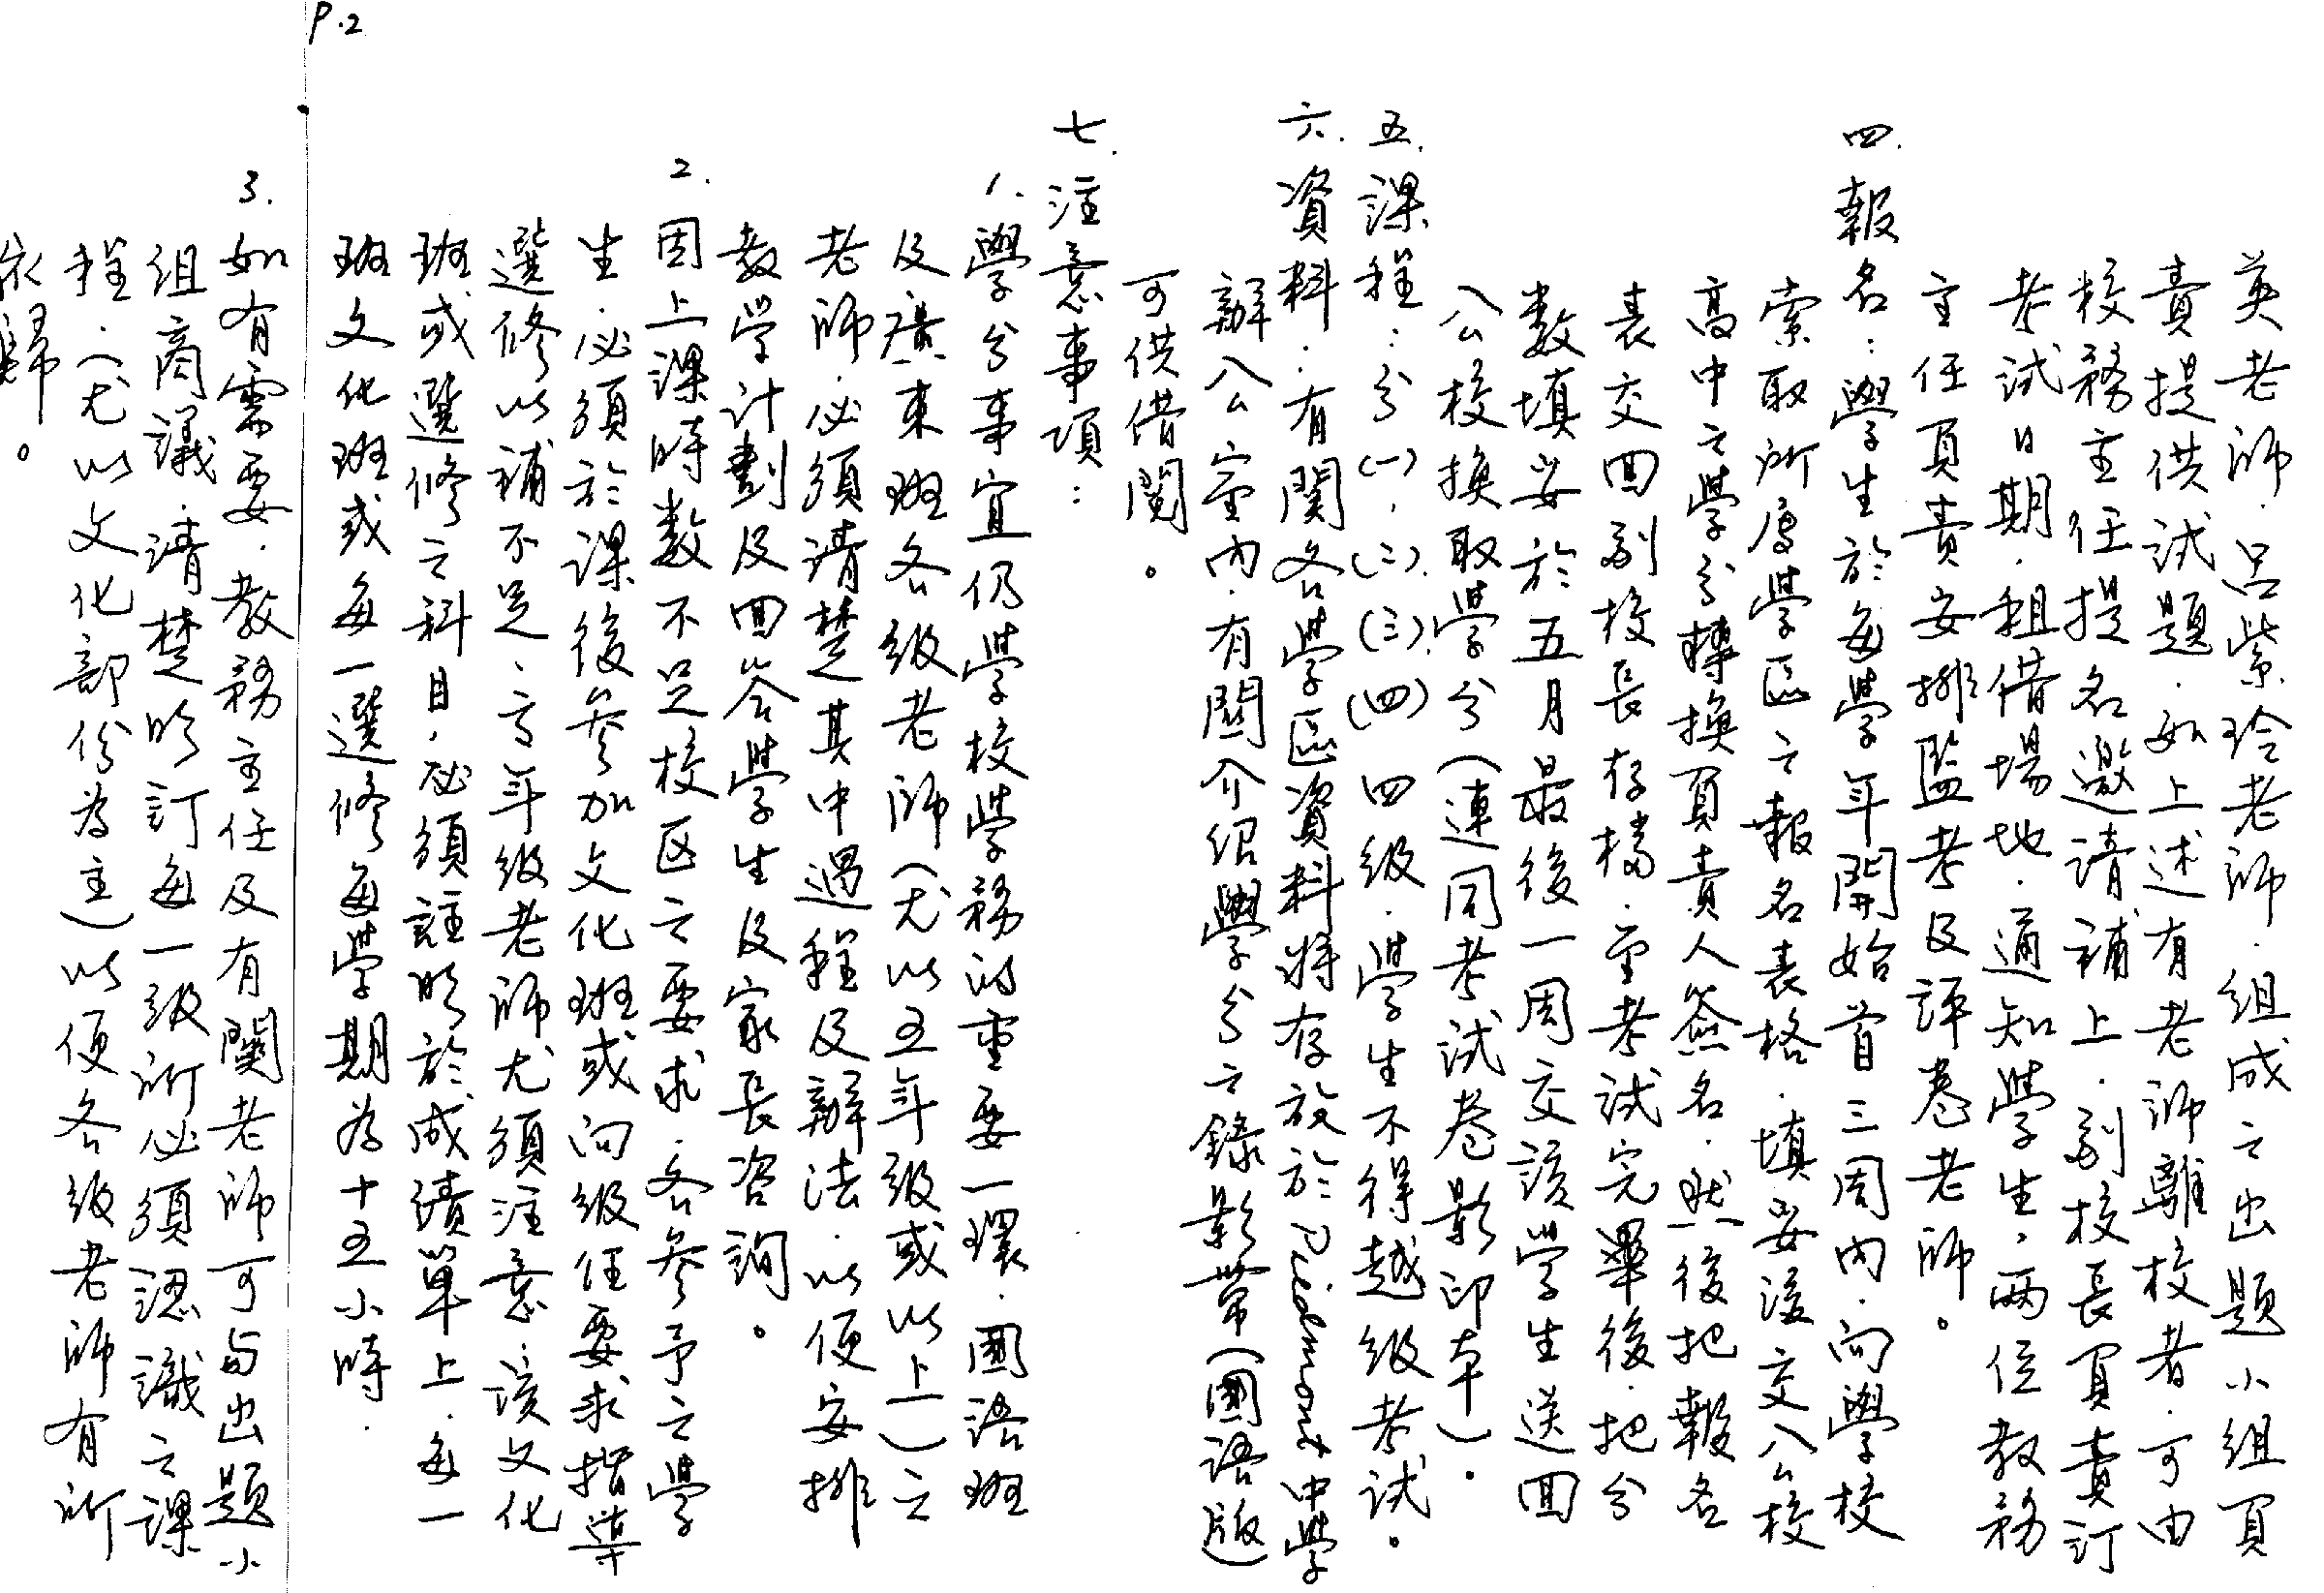 P.2
英老師.呂紫玲老師.組成之出題小組負
責提供試題.如上述有老師離校者.可由
校務主任提名邀請補上.副校長負責訂
考試日期.租借場地.通知學生.两位教務
主任負責安排監考及評卷老師。
四.報名:學生於每學年開始首三周内.向學校
索取所属學区之報名表格.填妥後交入公校
高中之學分轉換負責人簽名.然後把報名
表交回副校長存檔.至考試完畢後.把分
數填妥於五月最後一周交該学生送回
公校換取學分(連同考試卷影印本).
五.課程:分(一).(二).(三).(四)四级.學生不得越级考试。
六.資料.有関各學区資料將存放於Piedmont中學
辦公室内.有関介绍學分之錄影帶(國語版)
可供借閲。
七.注意事項:
1.學分事宜仍學校學務的重要一環.國語班
及廣東班各级老師(尤以五年级或以上)之
老師.必須清楚其中過程及辦法.以便安排
教学計劃及回答學生及家長咨詢。
2.因上課時數不足校区之要求.各參予之學
生.必須於課後参加文化班或向级任要求指導
選修以補不足.高年级老師尤須注意.該文化
班或選修之科目.必須註明於成績單上.每一
班文化班或每一選修每學期为十五小時.
3.如有需要.教務主任及有関老師可与出題小
组商議.清楚明訂每一级所必須認識之課
程.(尤以文化部份为主)以便各级老師有所
依歸。